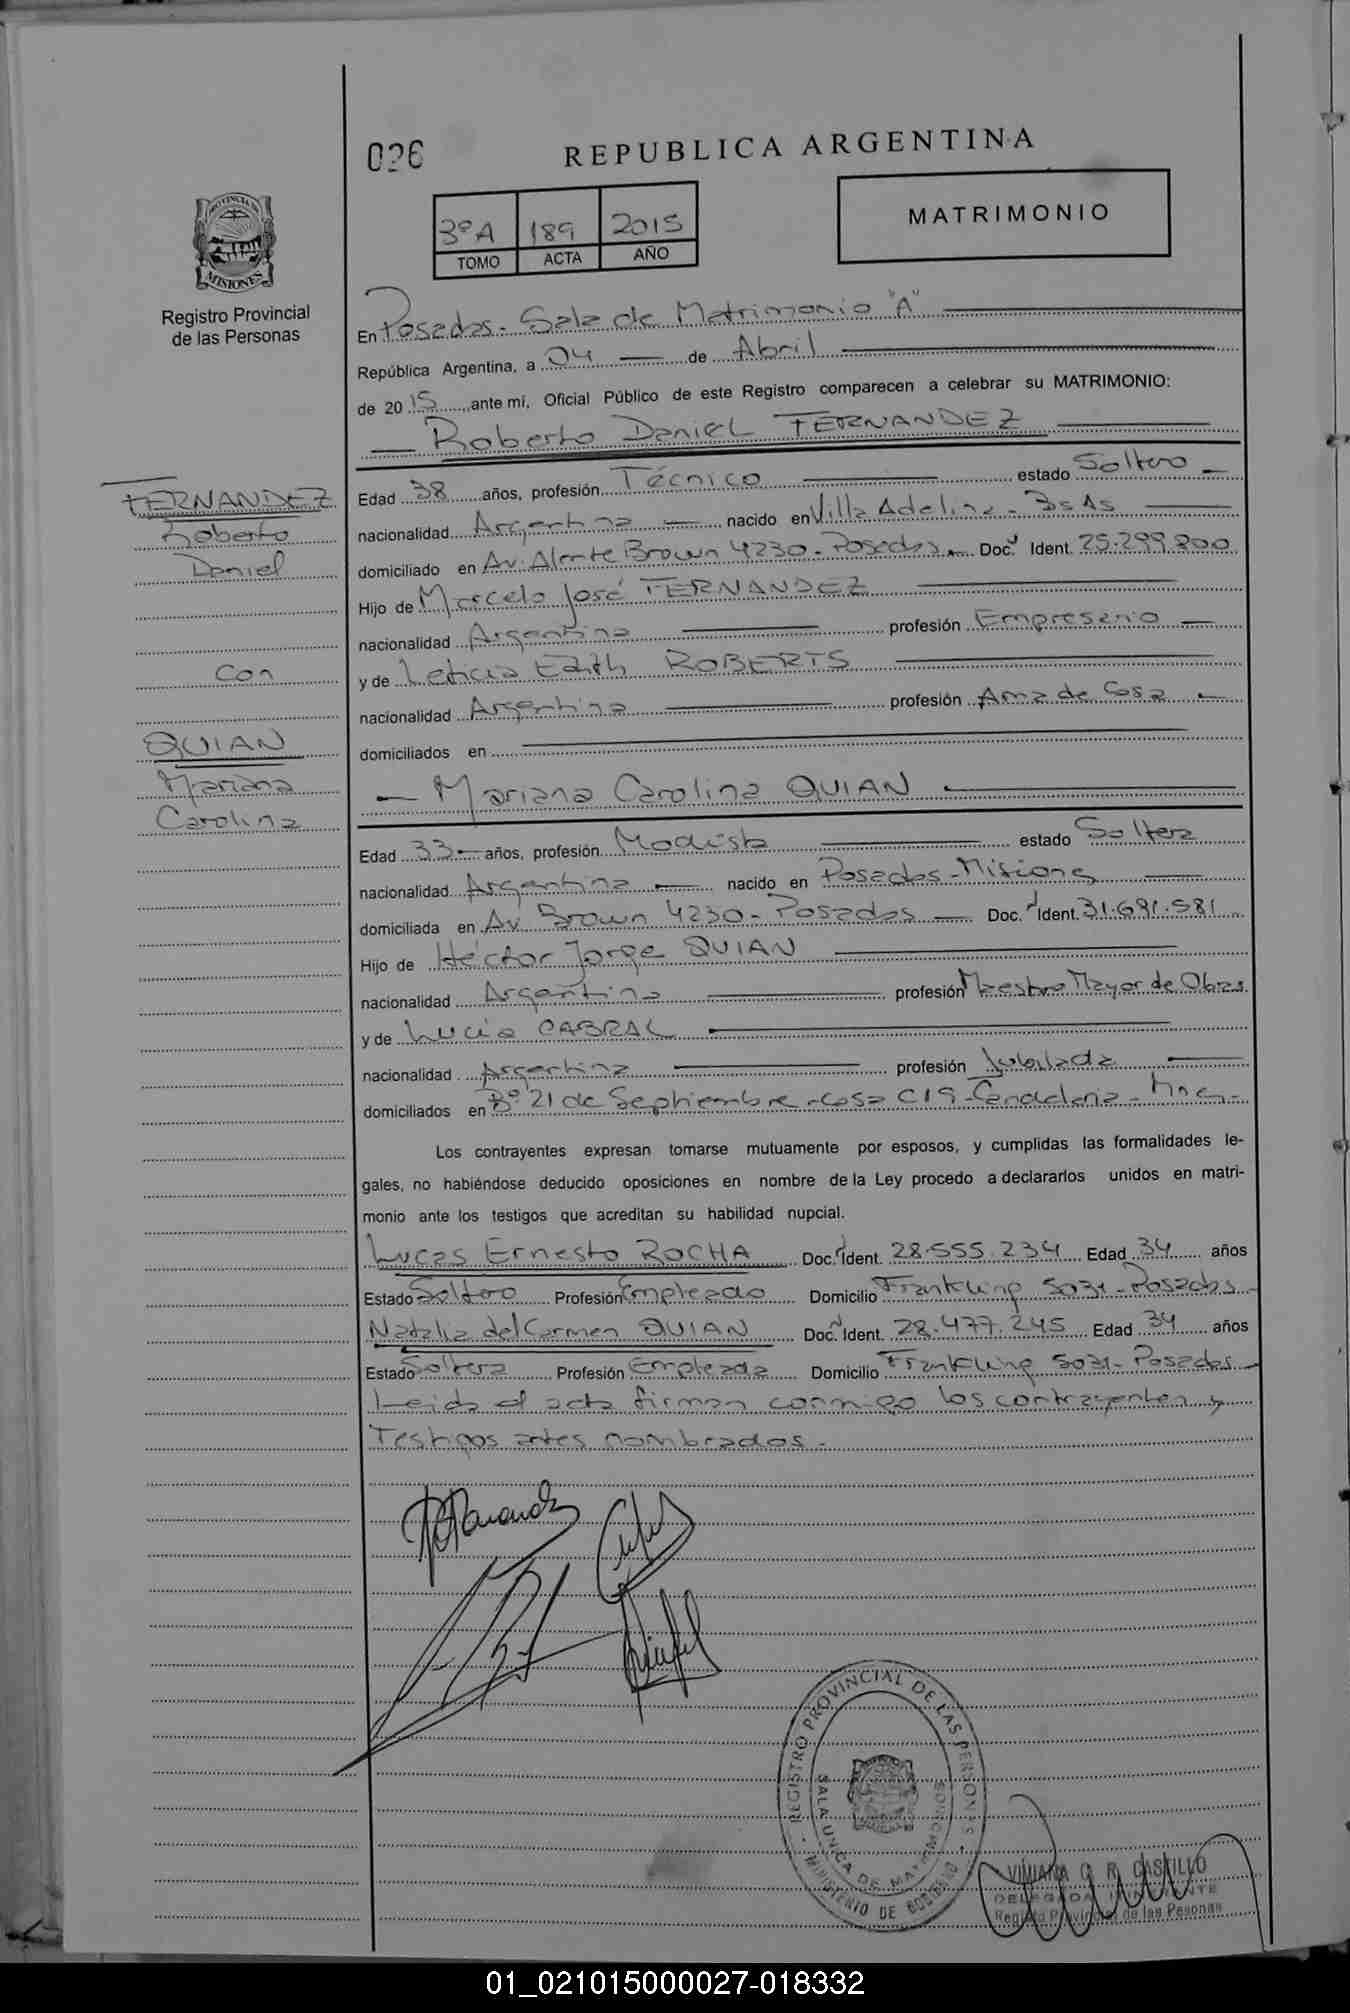 026
REPUBLICA ARGENTINA
PROVINCIA DE
MISIONES
Registro Provincial
de las Personas
3ºA 189 2015
TOMO ACTA AÑO
MATRIMONIO
En Posadas - Sala de Matrimonio "A"
República Argentina, a 04 de Abril
de 2015 ante mí, Oficial Público de este Registro comparecen a celebrar su MATRIMONIO:
Roberto Daniel FERNANDEZ
FERNANDEZ
Roberto
Daniel
con
QUIAN
Mariana
Carolina
Edad 38 años, profesión Técnico estado Soltero
nacionalidad Argentina nacido en Villa Adelina - Bs As
domiciliado en Av. Almte Brown 4230 - Posadas Doc. Ident. 25.299.800
Hijo de Marcelo José FERNANDEZ
nacionalidad Argentina profesión Empresario
y de Leticia Edith ROBERTS
nacionalidad Argentina profesión Ama de Casa
domiciliados en
Mariana Carolina QUIAN
Edad 33 años, profesión Modista estado Soltera
nacionalidad Argentina nacido en Posadas - Misiones
domiciliada en Av. Brown 4230 - Posadas Doc. Ident. 31.691.581
Hijo de Héctor Jorge QUIAN
nacionalidad Argentina profesión Maestro Mayor de Obras
y de Lucia CABRAL
nacionalidad Argentina profesión Jubilada
domiciliados en Bº 21 de Septiembre - casa C19 - Candelaria - Mnes -
Los contrayentes expresan tomarse mutuamente por esposos, y cumplidas las formalidades le-
gales, no habiéndose deducido oposiciones en nombre de la Ley procedo a declararlos unidos en matri-
monio ante los testigos que acreditan su habilidad nupcial.
Lucas Ernesto ROCHA Doc. Ident. 28.555.234 Edad 34 años
Estado Soltero Profesión Empleado Domicilio Frankling 5031 - Posadas
Natalia del Carmen QUIAN Doc. Ident. 28.477.245 Edad 34 años
Estado Soltera Profesión Empleada Domicilio Frankling 5031 - Posadas
Leida el acta firman conmigo los contrayentes y
Testigos antes nombrados -
REGISTRO PROVINCIAL DE LAS PERSONAS
SALA UNICA DE MATRIMONIOS
MINISTERIO DE GOBIERNO
VIVIANA C. R. CASTILLO
DELEGADA
Registro Provincial de las Pesonas
01_021015000027-018332